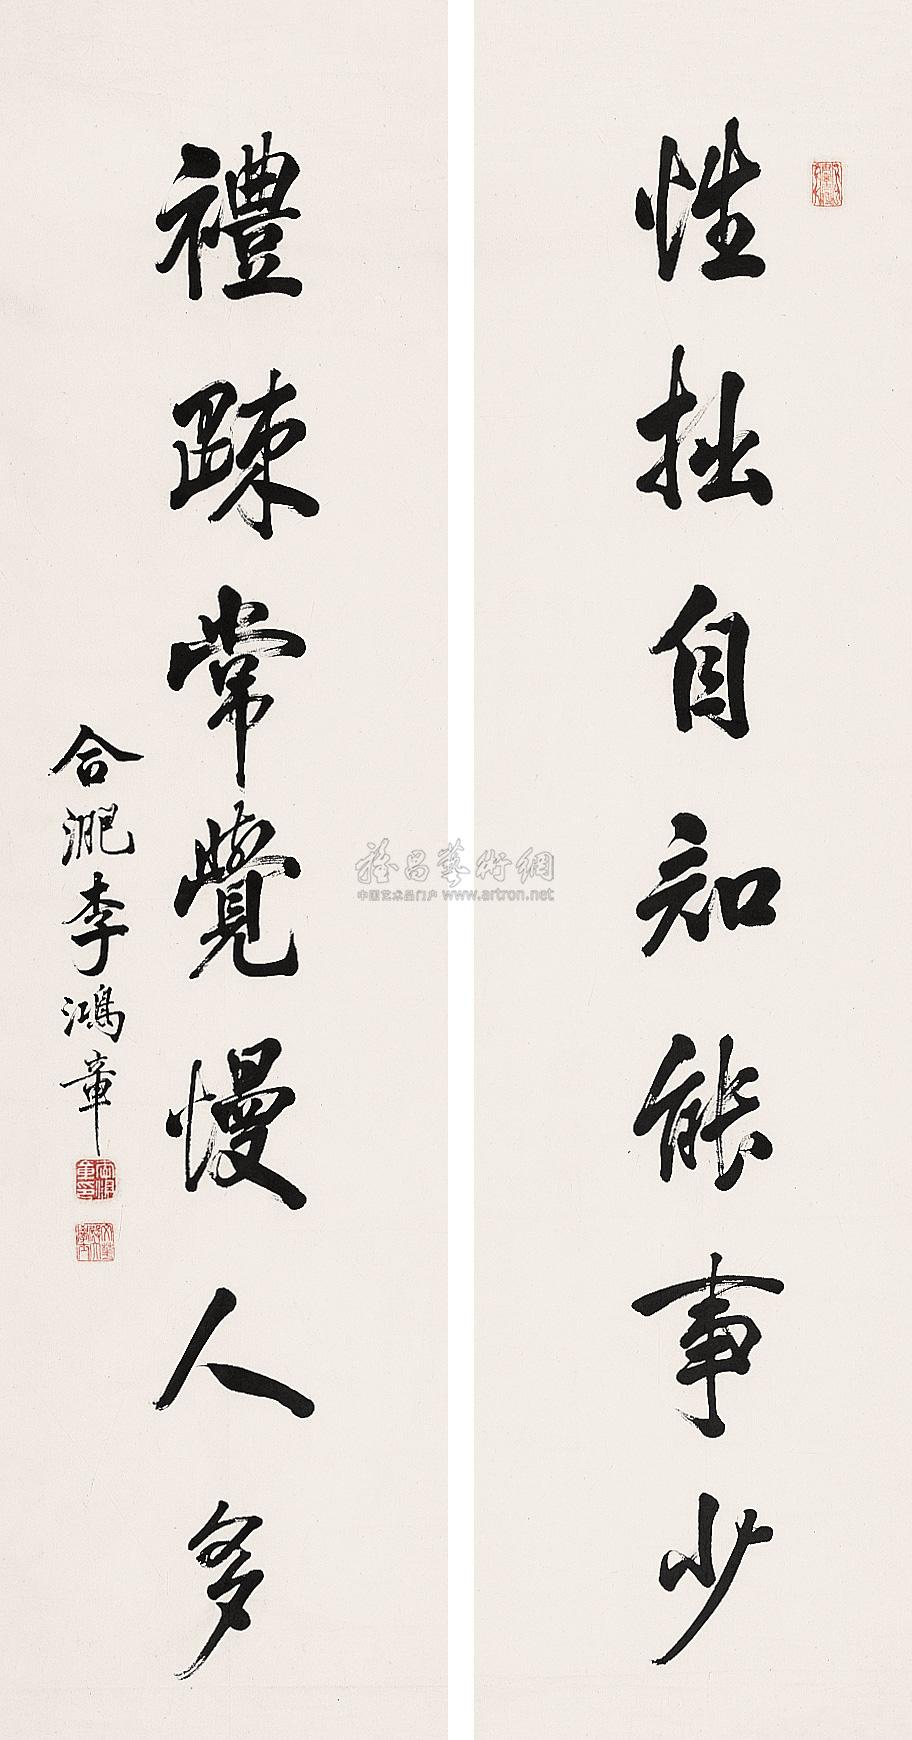 性拙自知能事少
禮踈常覺慢人多
合淝李鴻章
雅昌藝術網
中国艺术品门户 www.artron.net